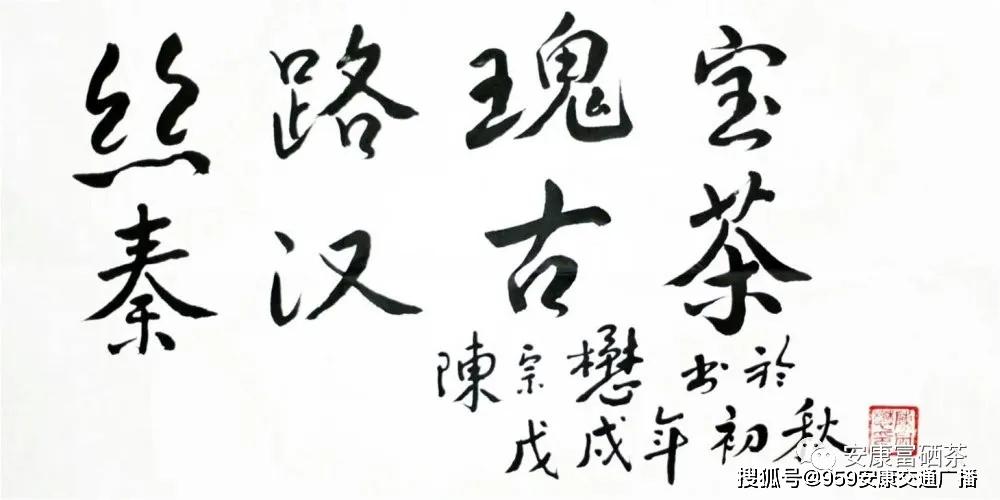 丝路瑰宝
秦汉古茶
陳宗懋 书於
戊戌年初秋
安康富硒茶
搜狐号@959安康交通广播